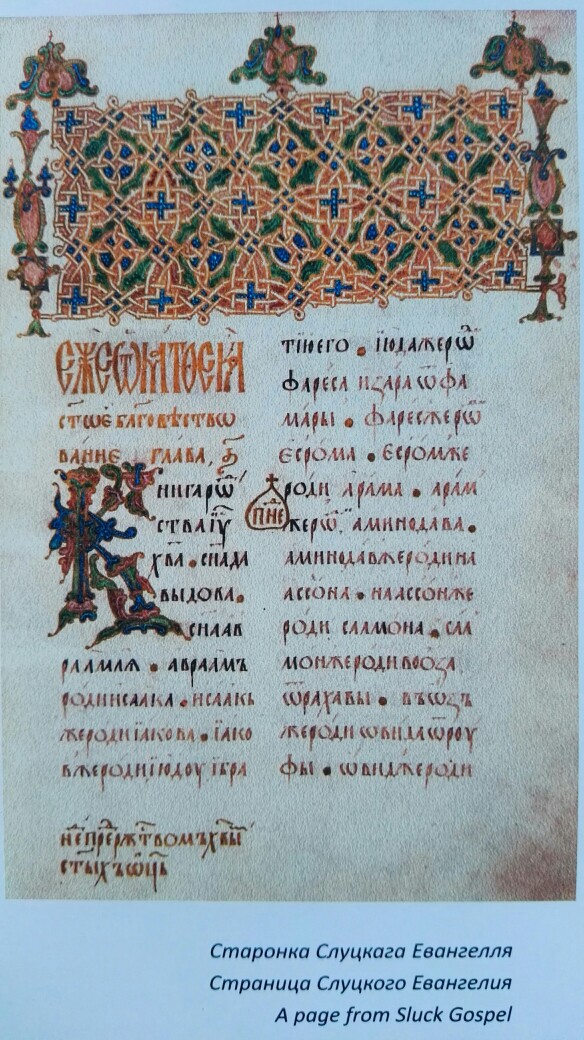 ЕЖЕ Ѿ МАТѲЕꙖ
СТ҃ОЕ БЛАГОВѢСТВО
ВАНИЕ ГЛАВА, А҃
КНИГА РѠ
СТВА ІУ
ХВА • СН҃А ДА
ВЫДОВА •
СН҃А АВ
РААМЛѦ • АВРААМЪ
РОДИ ИСААКА • ИСААКЬ
ЖЕ РОДИ ІАКОВА • ІАКО
ВЖЕ РОДИ ІЮДОУ І БРА
ТІЮ ЕГО • ІЮДА ЖЕ РѠ
ФАРЕСА И ЗАРА Ѡ ФА
МАРЫ • ФАРЕС ЖЕ РѠ
ЕСРОМА • ЕСРОМ ЖЕ
РОДИ АРАМА • АРАМ
ЖЕ РѠ АМИНОДАВА •
АМИНОДАВ ЖЕ РОДИ НА
АССОНА • НААССОН ЖЕ
РОДИ САЛМОНА • САЛ
МОН ЖЕ РОДИ ВООЗА
Ѿ РАХАВЫ • ВЪѠЗЪ
ЖЕ РОДИ ѠВИДА Ѿ РОУ
ФЫ • ѠВИД ЖЕ РОДИ
СТЫХЪ ѠЦЬ
Старонка Слуцкага Евангелля
Страница Слуцкого Евангелия
A page from Sluck Gospel